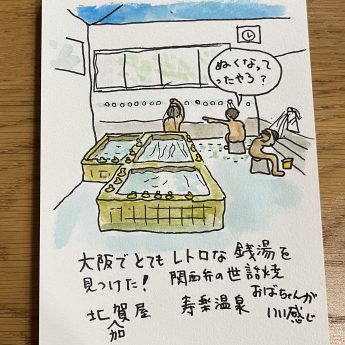 ぬくなって
ったやろ？
大阪でとてもレトロな銭湯を
見つけた！ 関西弁の世話焼
おばちゃんが
北賀屋 寿楽温泉 いい感じ
加